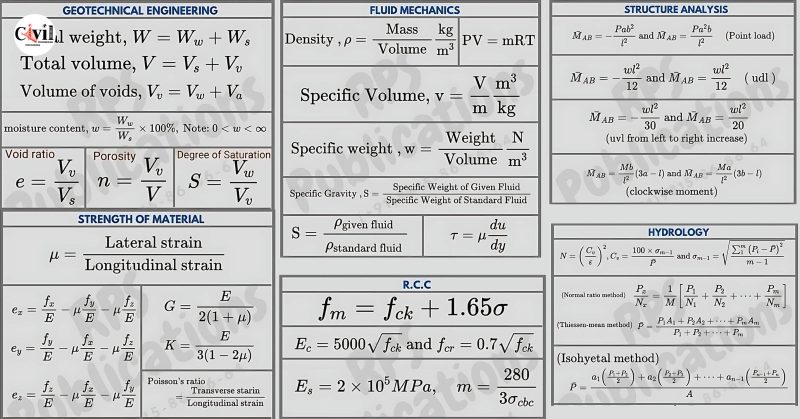 GEOTECHNICAL ENGINEERING
Civil
al weight, W = W_w + W_s
Total volume, V = V_s + V_v
Volume of voids, V_v = V_w + V_a
moisture content, w = W_w/W_s × 100%, Note: 0 < w < ∞
Void ratio
e = V_v/V_s
Porosity
n = V_v/V
Degree of Saturation
S = V_w/V_v
STRENGTH OF MATERIAL
μ = Lateral strain/Longitudinal strain
e_x = f_x/E − μ f_y/E − μ f_z/E
e_y = f_y/E − μ f_x/E − μ f_z/E
e_z = f_z/E − μ f_x/E − μ f_y/E
G = E/2(1 + μ)
K = E/3(1 − 2μ)
Poisson's ratio
= Transverse starin/Longitudinal strain
FLUID MECHANICS
Density, ρ = Mass/Volume kg/m³
PV = mRT
Specific Volume, v = V/m m³/kg
Specific weight, w = Weight/Volume N/m³
Specific Gravity, S = Specific Weight of Given Fluid/Specific Weight of Standard Fluid
S = ρ_given fluid/ρ_standard fluid
τ = μ du/dy
R.C.C
f_m = f_ck + 1.65σ
E_c = 5000√f_ck and f_cr = 0.7√f_ck
E_s = 2 × 10⁵ MPa, m = 280/3σ_cbc
STRUCTURE ANALYSIS
M̄_AB = −Pab²/l² and M̄_AB = Pa²b/l² (Point load)
M̄_AB = −wl²/12 and M̄_AB = wl²/12 ( udl )
M̄_AB = −wl²/30 and M̄_AB = wl²/20
(uvl from left to right increase)
M̄_AB = Mb/l² (3a − l) and M̄_AB = Ma/l² (3b − l)
(clockwise moment)
HYDROLOGY
N = (C_v/ε)², C_v = 100 × σ_m−1/P̄ and σ_m−1 = √(∑₁ᵐ(P_i − P̄)²/m − 1)
(Normal ratio method) P_x/N_x = 1/M [P_1/N_1 + P_2/N_2 + ··· + P_m/N_m]
(Thiessen-mean method) P̄ = P_1A_1 + P_2A_2 + ··· + P_mA_m/P_1 + P_2 + ··· + P_m
(Isohyetal method)
P̄ = a_1(P_1+P_2/2) + a_2(P_2+P_3/2) + ··· + a_n−1(P_n−1+P_n/2)/A
RPS
Publications
RPS
Publications
RPS
Publications